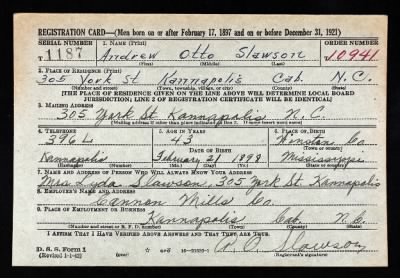 REGISTRATION CARD—(Men born on or after February 17, 1897 and on or before December 31, 1921)
SERIAL NUMBER 1. NAME (Print) ORDER NUMBER
T 1187 Andrew Otto Slawson T 10941
(First) (Middle) (Last)
2. PLACE OF RESIDENCE (Print)
305 York St Kannapolis Cab. N.C.
(Number and street) (Town, township, village, or city) (County) (State)
[THE PLACE OF RESIDENCE GIVEN ON THE LINE ABOVE WILL DETERMINE LOCAL BOARD
JURISDICTION; LINE 2 OF REGISTRATION CERTIFICATE WILL BE IDENTICAL]
3. MAILING ADDRESS
305 York St. Kannapolis N.C.
[Mailing address if other than place indicated on line 2. If same insert word same]
4. TELEPHONE 5. AGE IN YEARS 6. PLACE OF BIRTH
396L 43 Winston Co.
DATE OF BIRTH (Town or county)
Kannapolis February 21 1898 Mississippi
(Exchange) (Number) (Mo.) (Day) (Yr.) (State or country)
7. NAME AND ADDRESS OF PERSON WHO WILL ALWAYS KNOW YOUR ADDRESS
Mrs. Lyda Slawson, 305 York St. Kannapolis
8. EMPLOYER'S NAME AND ADDRESS
Cannon Mills Co.
9. PLACE OF EMPLOYMENT OR BUSINESS
Kannapolis Cab. N.C.
(Number and street or R. F. D. number) (Town) (County) (State)
I AFFIRM THAT I HAVE VERIFIED ABOVE ANSWERS AND THAT THEY ARE TRUE.
D. S. S. Form 1
(Revised 1-1-42) Slawson